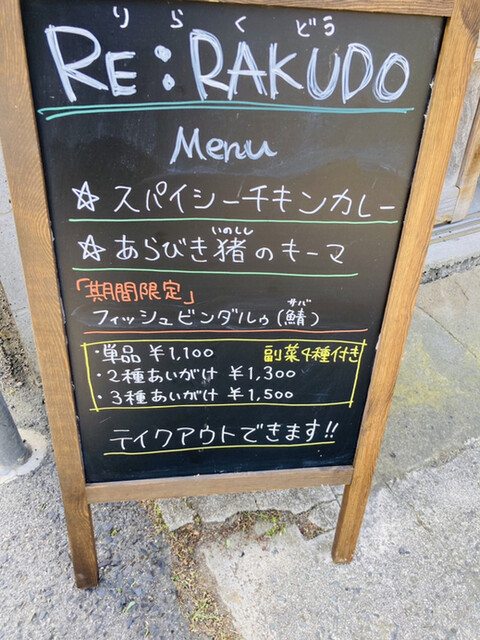 りらくどう
RE:RAKUDO
Menu
☆ スパイシーチキンカレー
いのしし
☆ あらびき猪のキーマ
「期間限定」
サバ
フィッシュビンダルゥ(鯖)
・単品 ¥1,100 副菜4種付き
・2種あいがけ ¥1,300
・3種あいがけ ¥1,500
テイクアウトできます!!